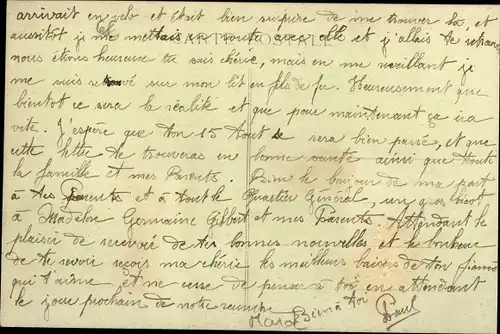 arrivait en velo et était bien surprise de me trouver là, et
aussitot je me mettais en route avec elle et j'allais te retrouver
CARTE POSTALE
nous étions heureux tu sais chérie, mais en me reveillant je
me suis retrouvé sur mon lit en fils de fer. Heureusement que
bientot ce sera la réalité et que pour maintenant ça ira
vite. J'espère que ton 15 Aout se sera bien passé, et que
cette lettre te trouveras en bonne santé ainsi que toute
la famille et mes Parents. Bien le bonjour de ma part
à tes Parents et à tout le Quartier Général, un gros bécot
à Madelon Germaine Gilbert et mes Parents. Attendant le
plaisir de recevoir de tes bonnes nouvelles, et le bonheur
de te revoir reçois ma chérie les meilleurs baisers de ton fiancé
qui t'aime et ne cesse de penser à toi en attendant
le jour prochain de notre reunion.
Bien à toi
Paul